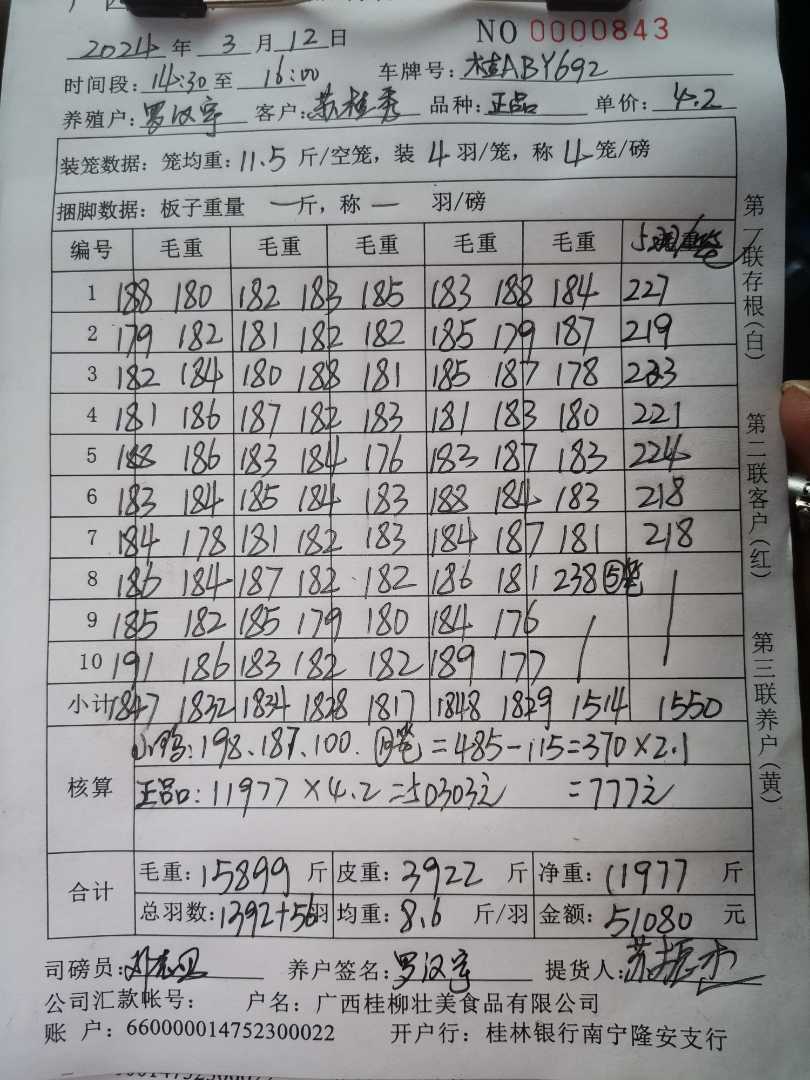 NO 0000843
2024 年 3 月 12 日
时间段: 14:30 至 16:00 车牌号: 桂ABY692
养殖户: 罗汉宇 客户: 苏桂秀 品种: 正品 单价: 4.2
装笼数据: 笼均重: 11.5 斤/空笼, 装 4 羽/笼, 称 4 笼/磅
捆脚数据: 板子重量 一 斤, 称 一 羽/磅
编号 毛重 毛重 毛重 毛重 毛重
1 188 180 182 183 185 183 188 184 227
2 179 182 181 182 182 185 179 187 219
3 182 184 180 188 181 185 187 178 223
4 181 186 187 182 183 181 183 180 221
5 188 186 183 184 176 183 187 183 224
6 183 184 185 184 183 188 184 183 218
7 184 178 181 182 183 184 187 181 218
8 186 184 187 182 182 186 181 238 ⑤笼
9 185 182 185 179 180 184 176
10 191 186 183 182 182 189 177
小计 1847 1832 1834 1828 1817 1848 1829 1514 1550
核算
小鸭: 198、187、100. 笼 = 485 - 115 = 370 × 2.1
正品: 11977 × 4.2 = 50303元 = 777元
合计
毛重: 15899 斤 皮重: 3922 斤 净重: 11977 斤
总羽数: 1392+56 羽 均重: 8.6 斤/羽 金额: 51080 元
司磅员: 养户签名: 罗汉宇 提货人: 苏振
公司汇款帐号: 户名: 广西桂柳壮美食品有限公司
账 户: 660000014752300022 开户行: 桂林银行南宁隆安支行
第一联存根(白)
第二联客户(红)
第三联养户(黄)